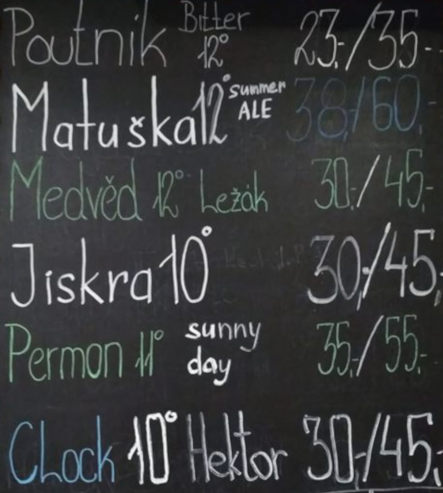 Poutnik Bitter 12° 23,-/35.-
Matuška 12° summer ALE 38/60,-
Medvěd 12° Ležák 30,-/45,-
Jiskra 10° 30,-/45,-
Permon 11° sunny day 35,-/55,-
CLock 10° Hektor 30,-/45,-